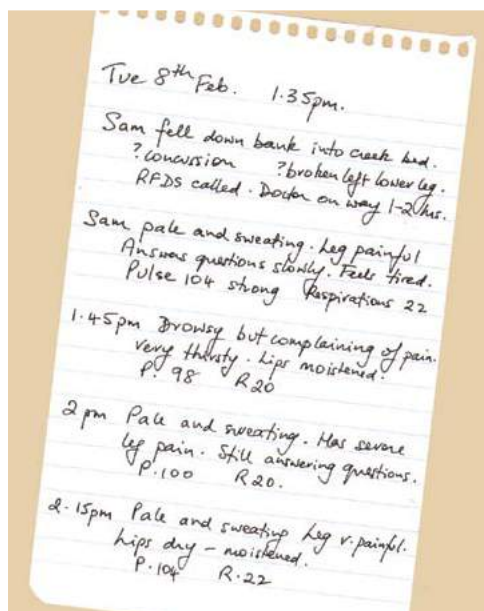 Tue 8th Feb. 1.35pm.
Sam fell down bank into creek bed.
?concussion ?broken left lower leg.
RFDS called. Doctor on way 1-2 hrs.
Sam pale and sweating. Leg painful
Answers questions slowly. Feels tired.
Pulse 104 strong Respirations 22
1.45pm Drowsy but complaining of pain.
very thirsty. Lips moistened.
P. 98 R20
2pm Pale and sweating. Has severe
leg pain. Still answering questions.
P.100 R20.
2.15pm Pale and sweating Leg v. painful.
Lips dry – moistened.
P.104 R.22